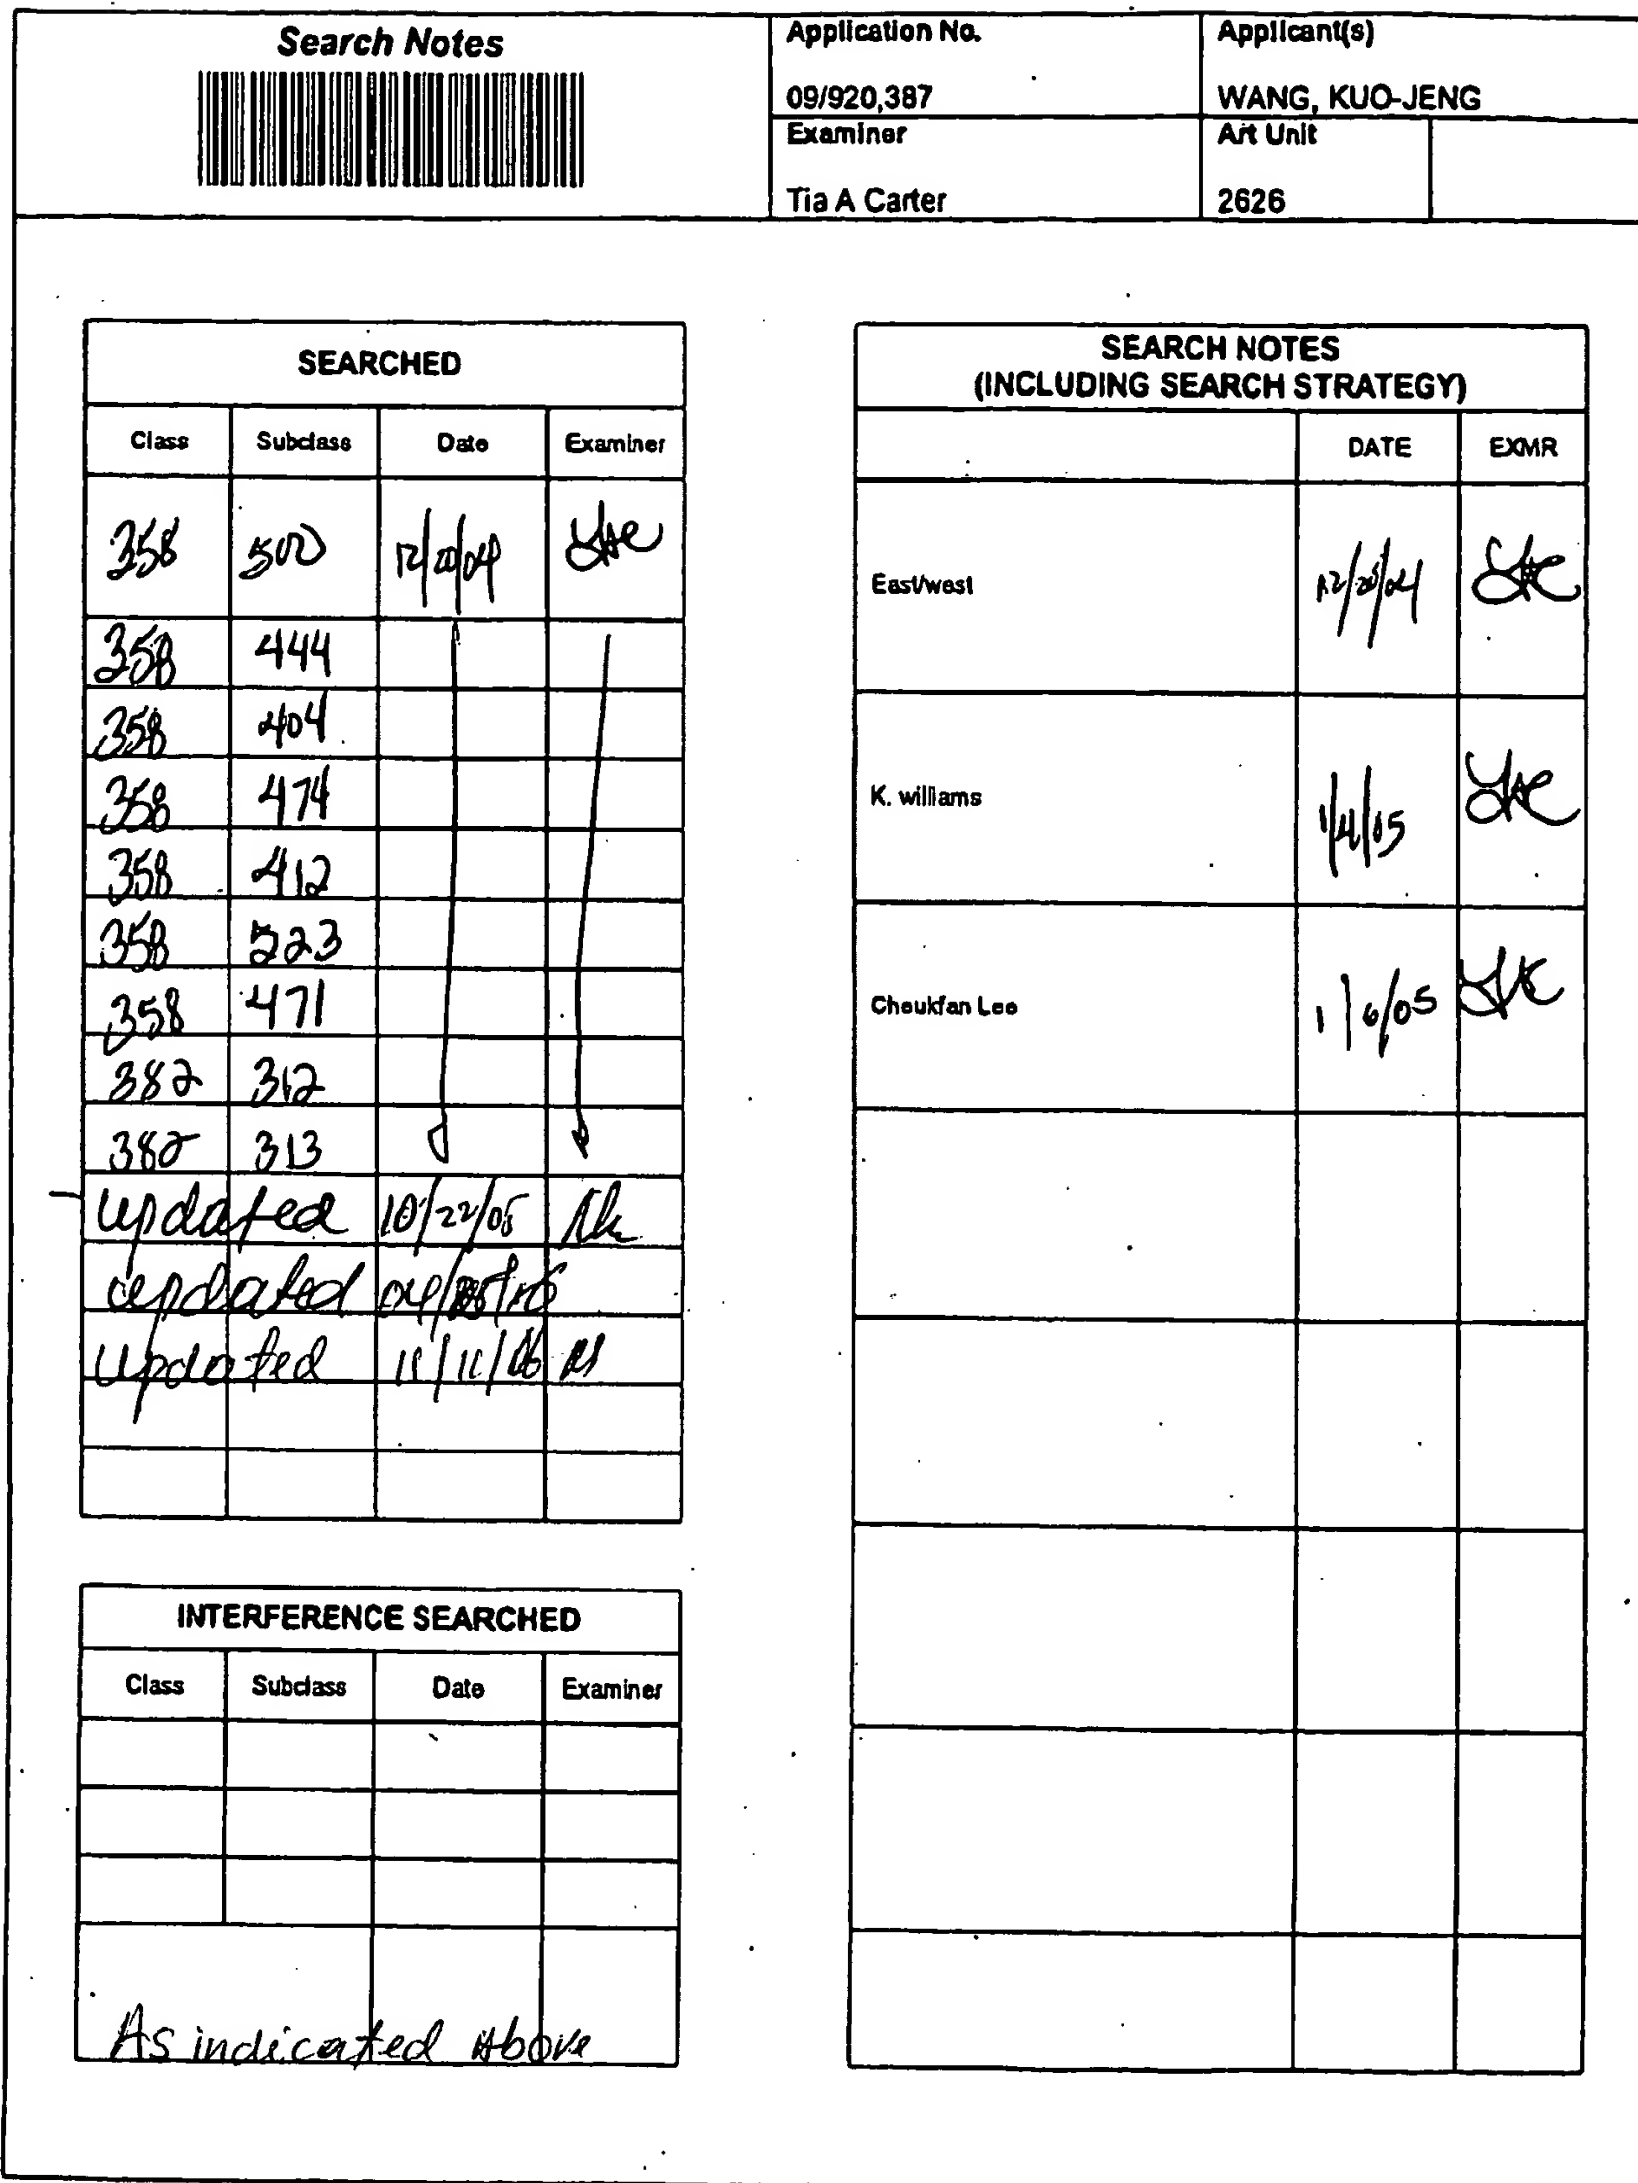 Search Notes
Application No.
09/920,387
Applicant(s)
WANG, KUO-JENG
Examiner
Tia A Carter
Art Unit
2626
SEARCHED
Class Subclass Date Examiner
358 500 12/20/04
358 444
358 404
358 474
358 412
358 523
358 471
382 312
382 313
updated 10/22/05
updated
updated 11/11/06
INTERFERENCE SEARCHED
Class Subclass Date Examiner
As indicated Above
SEARCH NOTES
(INCLUDING SEARCH STRATEGY)
DATE EXMR
East/west 12/20/04
K. williams 1/4/05
Cheukfan Lee 1/6/05